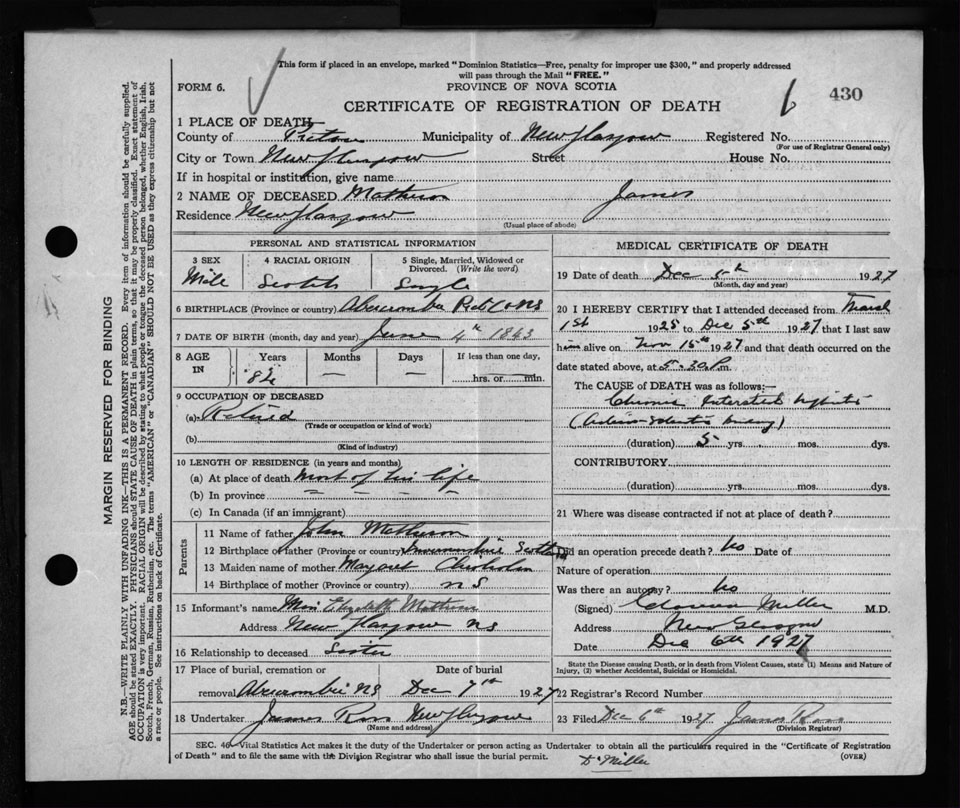 This form if placed in an envelope, marked "Dominion Statistics—Free, penalty for improper use $300," and properly addressed
will pass through the Mail "FREE."
FORM 6.
PROVINCE OF NOVA SCOTIA
430
CERTIFICATE OF REGISTRATION OF DEATH
1 PLACE OF DEATH
County of Pictou Municipality of New Glasgow Registered No.
(For use of Registrar General only)
City or Town New Glasgow Street House No.
If in hospital or institution, give name
2 NAME OF DECEASED Matheson James
Residence New Glasgow
(Usual place of abode)
PERSONAL AND STATISTICAL INFORMATION
3 SEX 4 RACIAL ORIGIN 5 Single, Married, Widowed or Divorced. (Write the word)
Male Scotch Single
6 BIRTHPLACE (Province or country) Abercrombie Pict Co NS
7 DATE OF BIRTH (month, day and year) June 4th 1843
8 AGE IN Years Months Days If less than one day,
84 — — hrs. or min.
9 OCCUPATION OF DECEASED
(a) Retired
(Trade or occupation or kind of work)
(b)
(Kind of industry)
10 LENGTH OF RESIDENCE (in years and months)
(a) At place of death Most of his life
(b) In province — — — —
(c) In Canada (if an immigrant)
Parents
11 Name of father John Matheson
12 Birthplace of father (Province or country) Scotland
13 Maiden name of mother Margaret Chisholm
14 Birthplace of mother (Province or country) NS
15 Informant's name Miss Elizabeth Matheson
Address New Glasgow NS
16 Relationship to deceased Sister
17 Place of burial, cremation or Date of burial
removal Abercrombie NS Dec 7th 1927
18 Undertaker James Ross New Glasgow
(Name and address)
MEDICAL CERTIFICATE OF DEATH
19 Date of death Dec 5th 1927
(Month, day and year)
20 I HEREBY CERTIFY that I attended deceased from March
1st 1925 to Dec 5th 1927 that I last saw
him alive on Nov 15th 1927 and that death occurred on the
date stated above, at 5.30 P.m.
The CAUSE of DEATH was as follows:—
Chronic Interstitial Nephritis
(Arterio-sclerotic kidney)
(duration) 5 yrs. mos. dys.
CONTRIBUTORY
(duration) yrs. mos. dys.
21 Where was disease contracted if not at place of death?
Did an operation precede death? No Date of
Nature of operation
Was there an autopsy? No
(Signed) Clarence Miller M.D.
Address New Glasgow
Date Dec 6th 1927
State the Disease causing Death, or in death from Violent Causes, state (1) Means and Nature of
Injury, (2) whether Accidental, Suicidal or Homicidal.
22 Registrar's Record Number
23 Filed Dec 6th 1927 James Ross
(Division Registrar)
SEC. 40 Vital Statistics Act makes it the duty of the Undertaker or person acting as Undertaker to obtain all the particulars required in the "Certificate of Registration
of Death" and to file the same with the Division Registrar who shall issue the burial permit.
(OVER)
Dr Miller
MARGIN RESERVED FOR BINDING
N.B.—WRITE PLAINLY WITH UNFADING INK—THIS IS A PERMANENT RECORD. Every item of information should be carefully supplied.
AGE should be stated EXACTLY. PHYSICIANS should STATE CAUSE OF DEATH in plain terms, so that it may be properly classified. Exact statement of
OCCUPATION is very important. RACIAL ORIGIN will be described by stating to what people or tongue the deceased person belonged, whether English, Irish,
Scotch, French, German, Russian, Ruthenian, etc. The terms "AMERICAN" or "CANADIAN" SHOULD NOT BE USED as they express citizenship but not
a race or people. See instructions on back of Certificate.